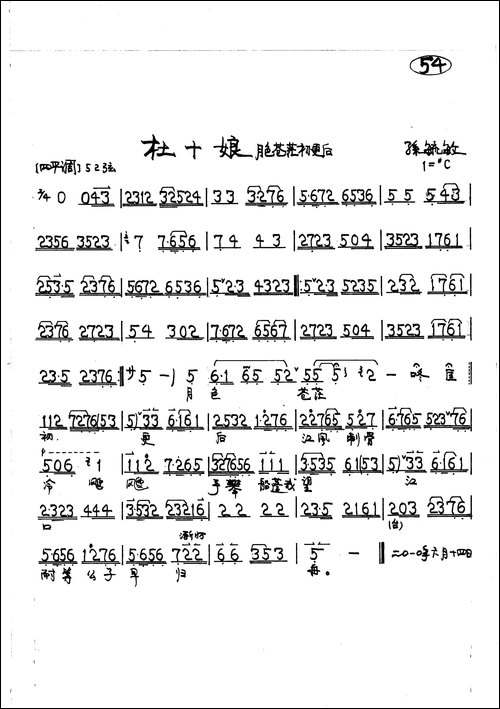 54
杜十娘 月色苍茫初更后 孫毓敏
[四平调] 52弦 1=#C
2/4 0 043 | 2312 32524 | 33 3276 | 5·672 6536 | 55 543 |
2356 3523 | 7 7·656 | 74 43 | 2723 504 | 3523 1761 |
253·5 2376 | 5672 6536 | 523 4323 | 523 5235 | 232 1761 |
2376 2723 | 54 302 | 7·672 6567 | 2723 504 | 3523 1761 |
23·5 2376 | 5 - ) 5 6·1 65 52 55 5 2 - 咪
月 色 苍茫
112 7276(53 | 5)33 6·161 | 2532 1·276 | 22765 527 | 6·765 52376 |
初 更 后 江风 刺骨
506 1 | 112 7·265 | 327656 111 | 3535 61(53 | 5)33 6·161 |
冷 飕 飕 手攀 船篷我望 江
2323 444 | 3532 23216 | 22 22 | 23·5 2161 | 203 2376 |
口 (白)
渐好
5·656 1276 | 5·656 722 | 66 353 | 5 - ‖ 二〇一〇年六月十四日
耐等 公子 早 归